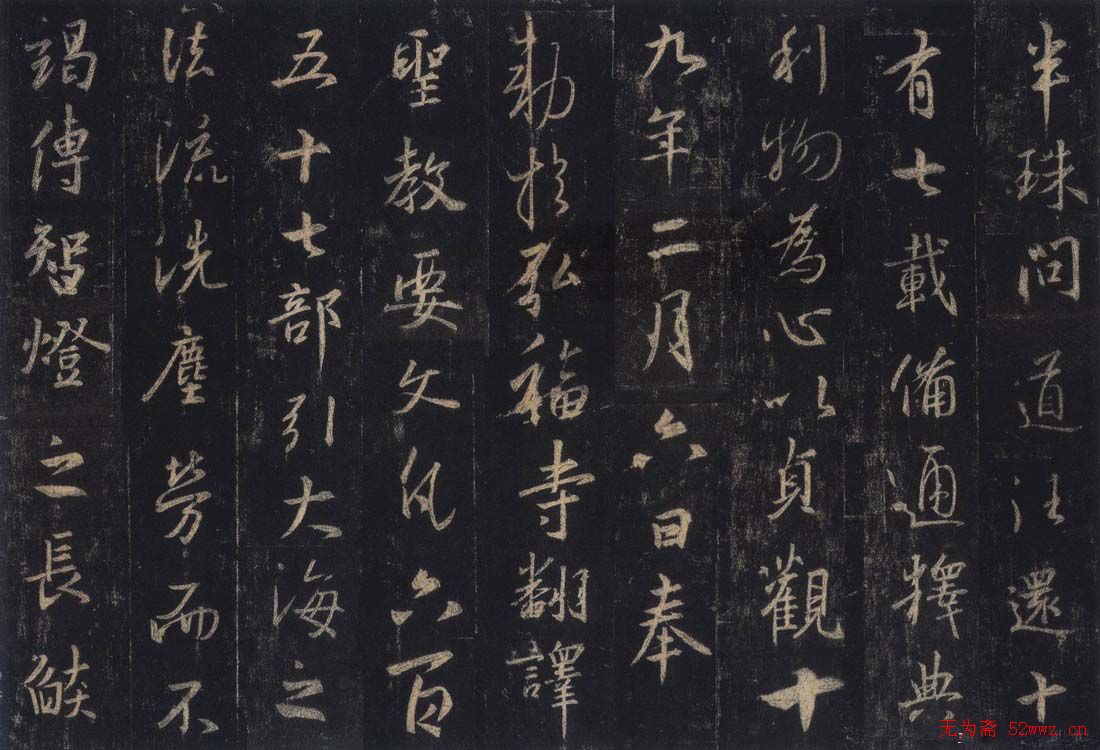 半珠問道往還十
有七載備通釋典
利物為心以貞觀十
九年二月六日奉
勅於弘福寺翻譯
聖教要文凡六百
五十七部引大海之
法流洗塵勞而不
竭傳智燈之長皎
无为斋 52wwz.cn